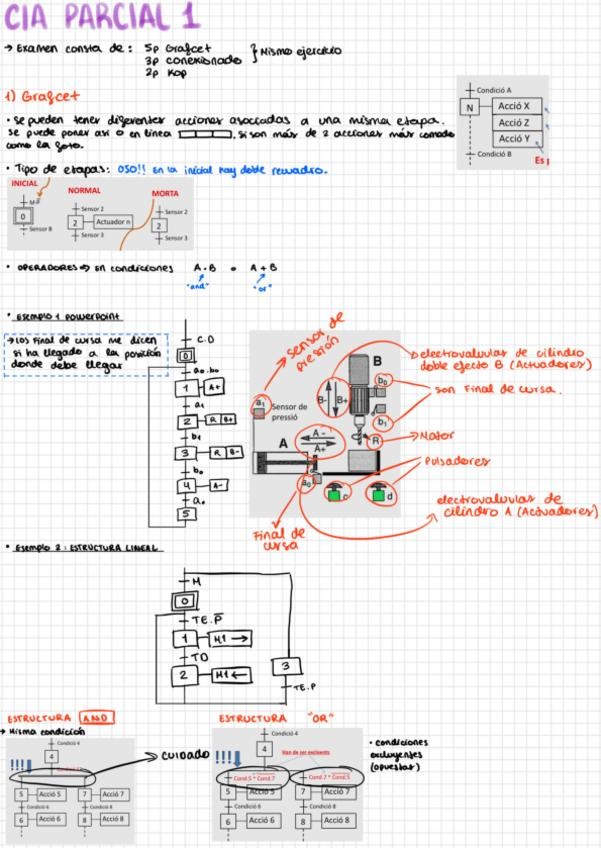 CIA PARCIAL 1
→ Examen consta de : 5p Grafcet
3p conexionado
2p KOP
} Mismo ejercicio
1) Grafcet
• Se pueden tener diferentes acciones asociadas a una misma etapa.
Se puede poner asi o en linea , si son más de 2 acciones más comodo
como la foto.
Condició A
N
Acció X
Acció Z
Acció Y
Condició B
Es
• Tipo de etapas: OJO!! En la inicial hay doble recuadro.
INICIAL
NORMAL
MORTA
M
0
Sensor B
Sensor 2
2
Actuador n
Sensor 3
Sensor 2
2
Sensor 3
• OPERADORES => En condiciones A · B o A + B
"and"
"or"
• Ejemplo 1 powerpoint
→ los final de cursa me dicen
si ha llegado a la posición
donde debe llegar
C.D
0
a0.b0
1
A+
a1
2
R
B+
b1
3
R
B-
b0
4
A-
a0
5
sensor de
presión
a1
Sensor de
pressió
B
B-
B+
b0
b1
R
A
A -
A+
a0
c
d
Final de
cursa
electrovalvulas de cilindro
doble efecto B (Actuadores)
son Final de cursa.
Motor
Pulsadores
electrovalvulas de
cilindro A (Actuadores)
• Ejemplo 2 : ESTRUCTURA LINEAL
M
0
TE.P̅
1
M1 →
TD
2
M1 ←
3
TE.P
ESTRUCTURA AND
→ Misma condición
Condició 4
4
!!!!
5
Acció 5
7
Acció 7
Condició 6
Condició 8
6
Acció 6
8
Acció 8
CUIDADO
ESTRUCTURA "OR"
Condició 4
4
Han de ser excloents
!!!!
Cond.5 * Cond.7
Cond.7 * Cond.5
5
Acció 5
7
Acció 7
Condició 6
Condició 8
6
Acció 6
8
Acció 8
• condiciones
excluyentes
(opuestas)